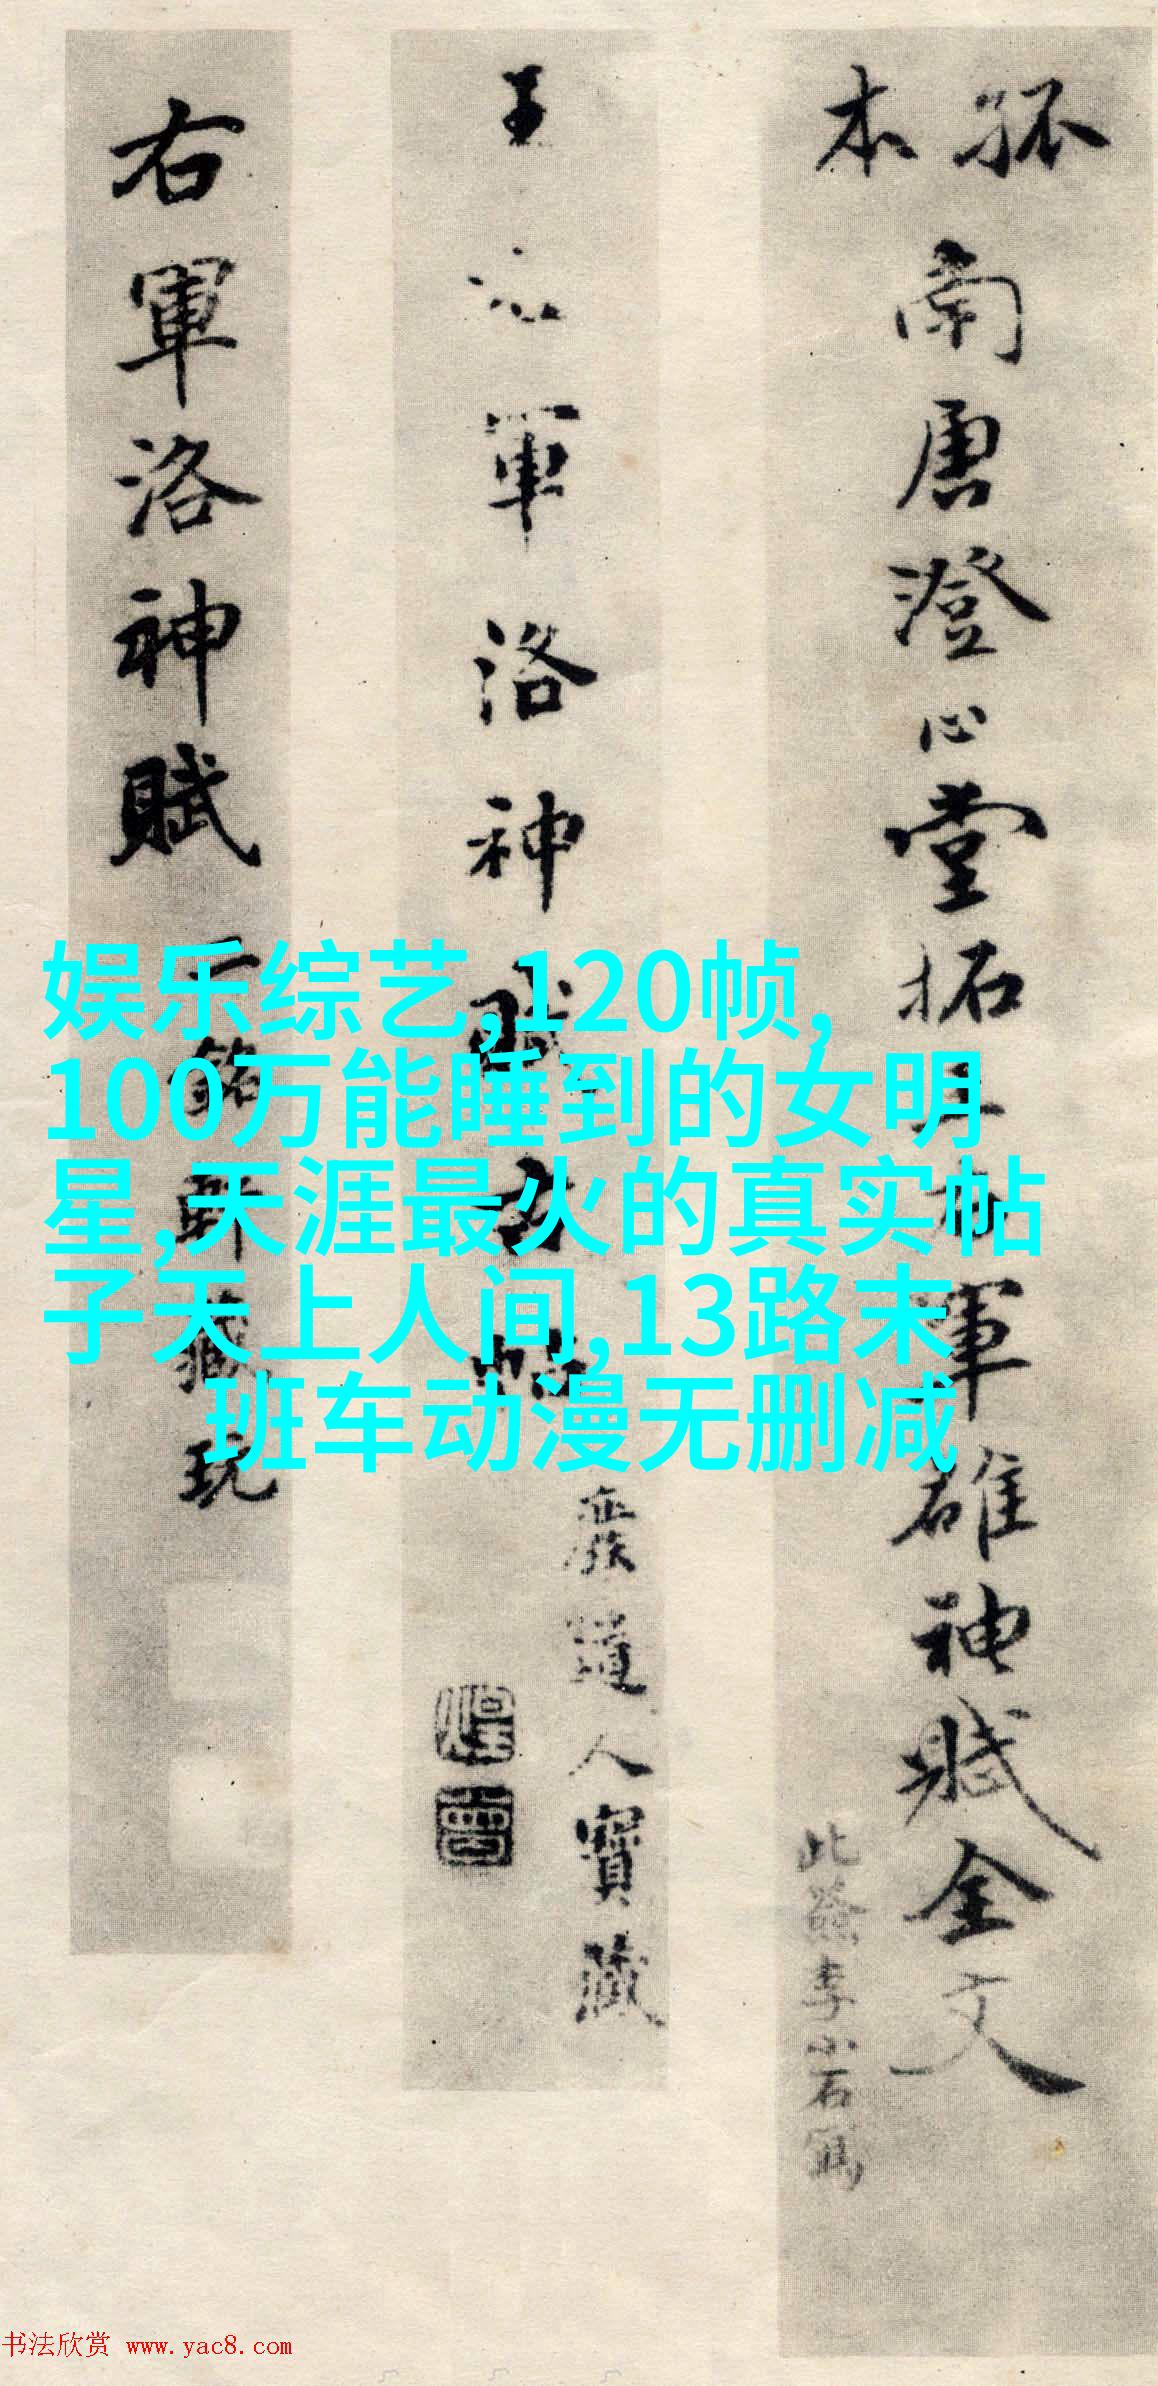 孤本
南唐澄心堂拓王右軍雒神賦全文
此簽李小石寫
王右軍洛神賦
癡道人寶藏
右軍洛神賦
娱乐综艺,120帧,
100万能睡到的女明
星,天涯最火的真实帖
子天上人间,13路末
班车动漫无删减
书法欣赏 www.yac8.com